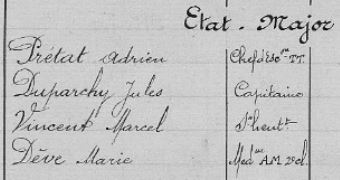 Etat-Major
Prétat Adrien Chef d'Esc.on TT.
Duparchy Jules Capitaine
Vincent Marcel S/lieut.t
Dève Marie Med. A.M. 2e cl.